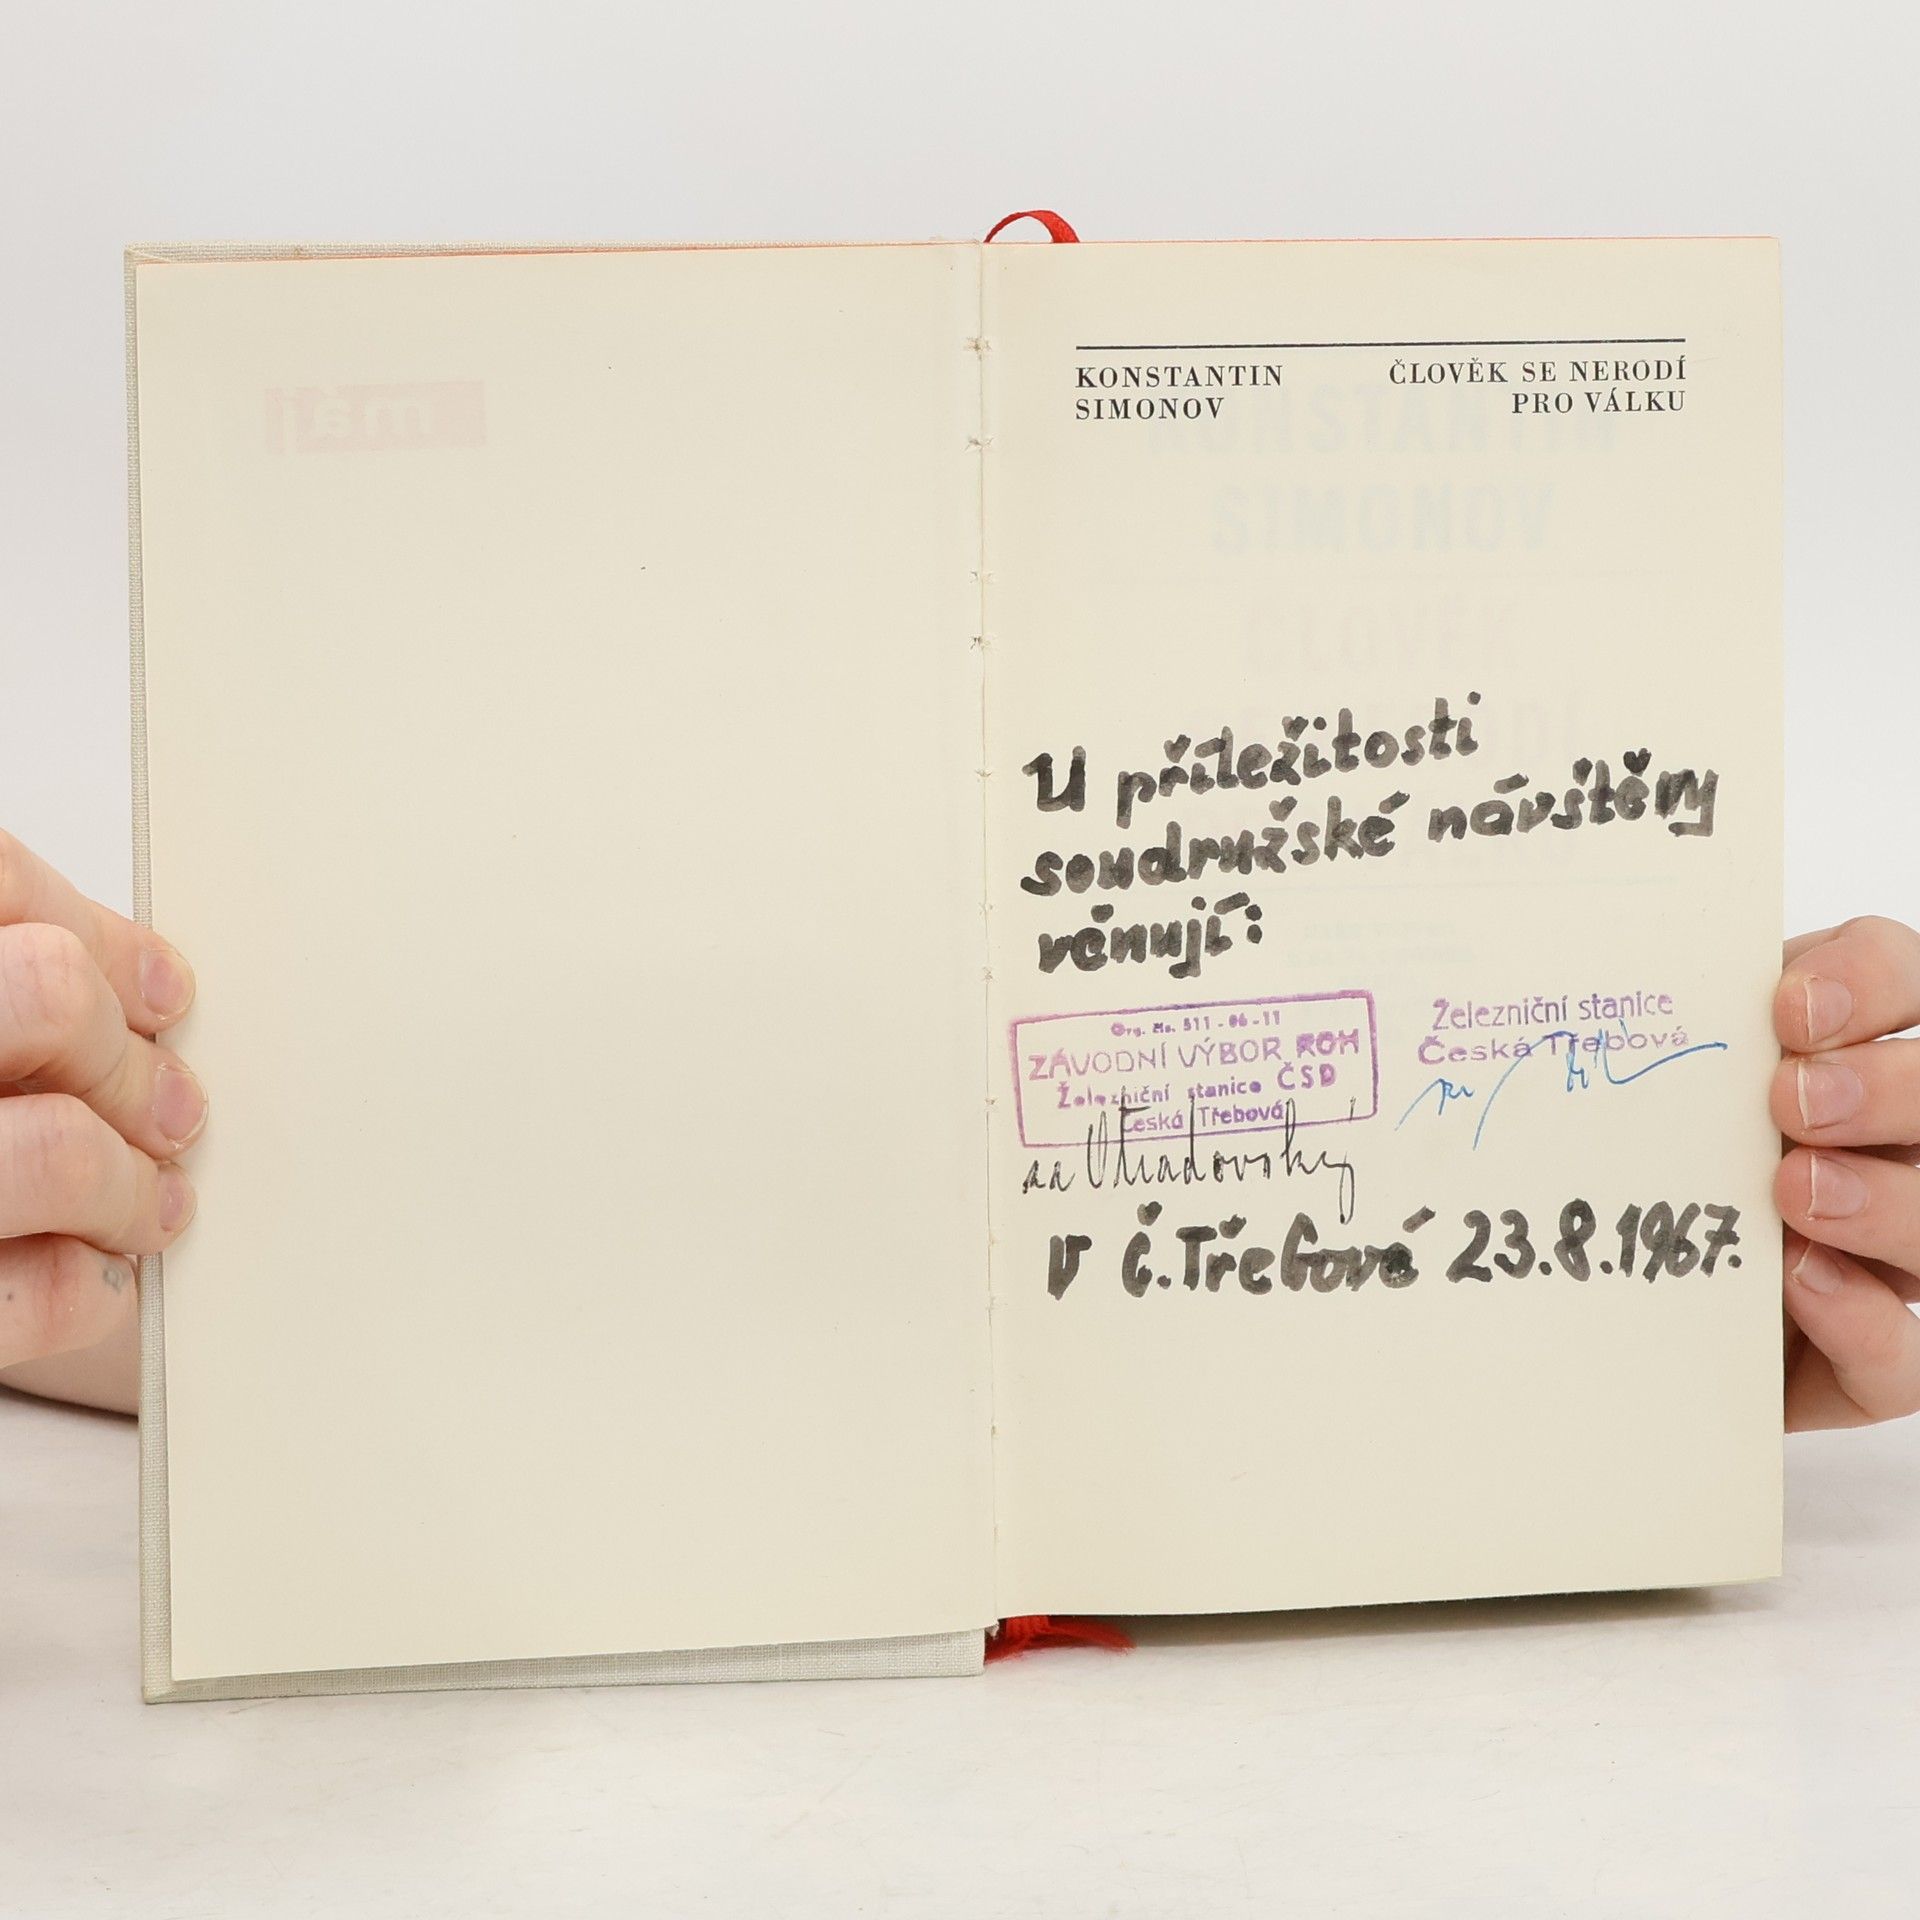 KONSTANTIN SIMONOV
ČLOVĚK SE NERODÍ PRO VÁLKU
U příležitosti
soudružské návštěvy
věnují:
Org. čís. 511-06-11
ZÁVODNÍ VÝBOR ROH
Železniční stanice ČSD
Česká Třebová
Železniční stanice
Česká Třebová
V Č. Třebové 23.8.1967.